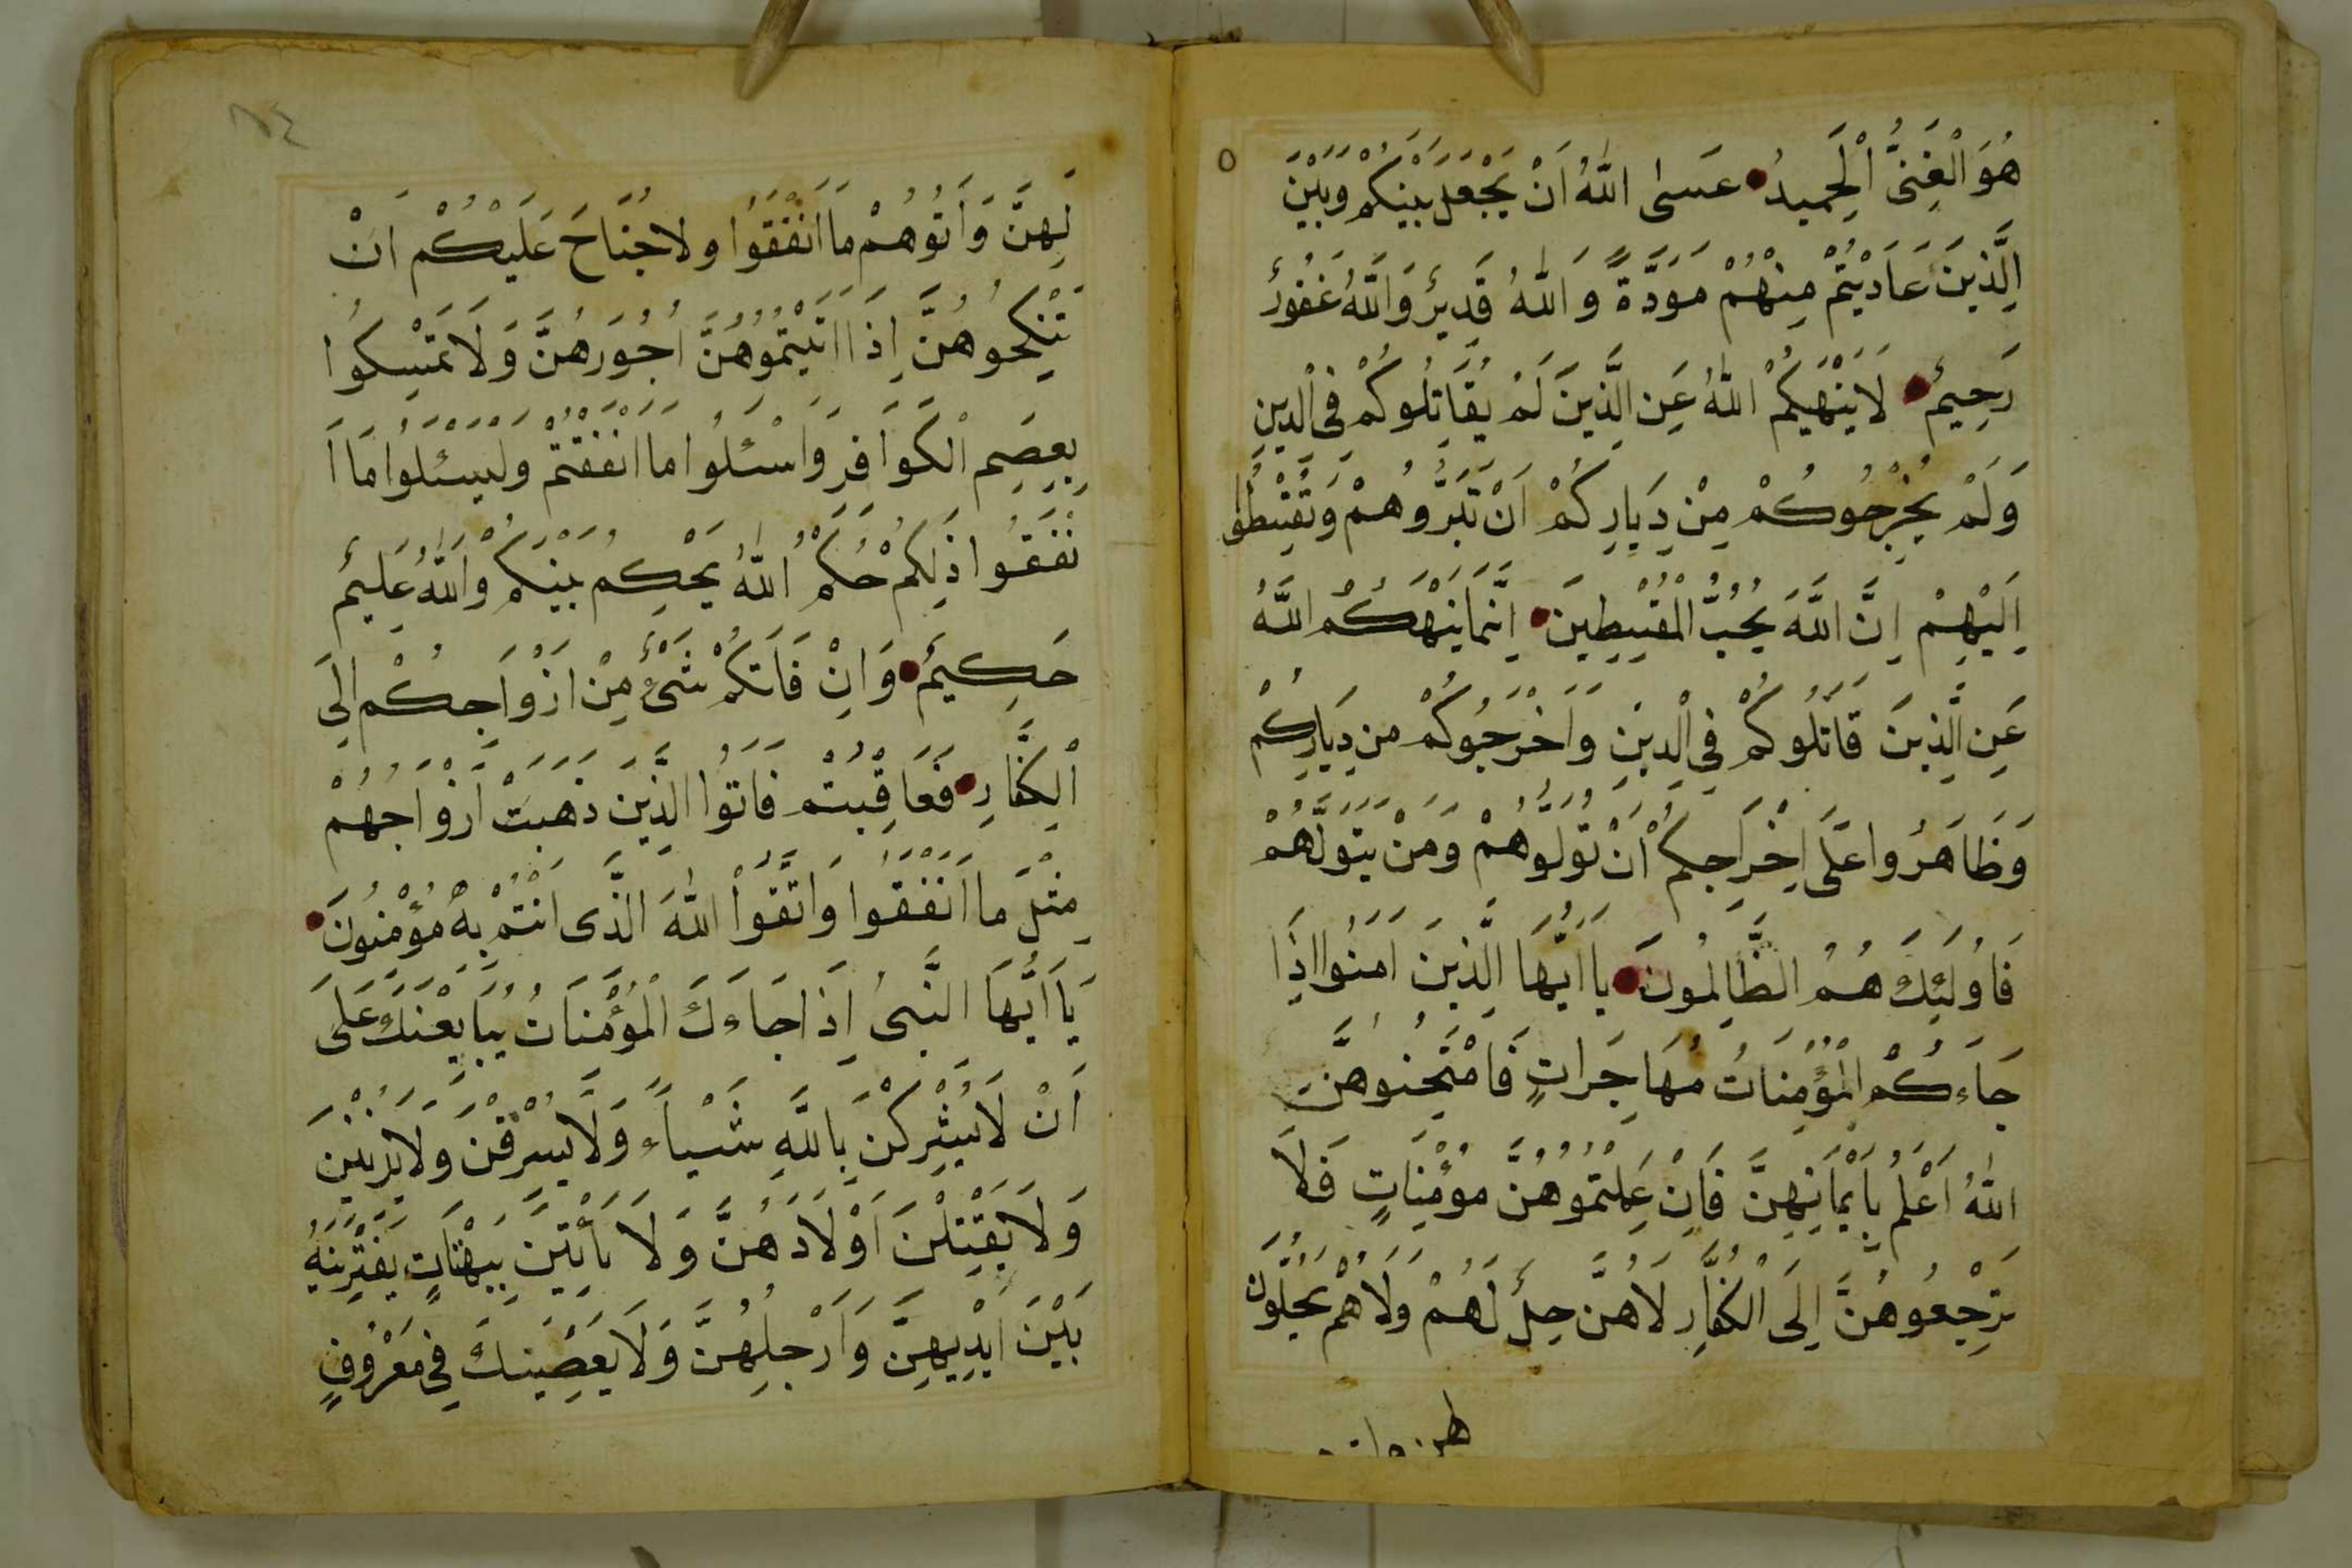 هُوَ الْغَنِىُّ الْحَمِيدُ عَسٰى اللّٰهُ اَنْ يَجْعَلَ بَيْنَكُمْ وَبَيْنَ
الَّذِينَ عَادَيْتُمْ مِنْهُمْ مَوَدَّةً وَاللّٰهُ قَدِيرٌ وَاللّٰهُ غَفُورٌ
رَحِيمٌ لَا يَنْهَيكُمْ اللّٰهُ عَنِ الَّذِينَ لَمْ يُقَاتِلُوكُمْ فِى الْدِينِ
وَلَمْ يُخْرِجُوكُمْ مِنْ دِيَارِكُمْ اَنْ تَبَرُّوهُمْ وَتُقْسِطُوا
اِلَيْهِمْ اِنَّ اللَّهَ يُحِبُّ الْمُقْسِطِينَ اِنَّمَا يَنْهَكُمُ اللَّهُ
عَنِ الَّذِينَ قَاتَلُوكُمْ فِى الْدِينِ وَاَخْرَجُوكُمْ مِنْ دِيَارِكُمْ
وَظَاهَرُوا عَلَى اِخْرَاجِكُمْ اَنْ تَوَلَّوْهُمْ وَمَنْ يَتَوَلَّهُمْ
فَاُولَئِكَ هُمُ الظَّالِمُونَ يَا اَيُّهَا الَّذِينَ اٰمَنُوا اِذَا
جَاءَكُمُ الْمُؤْمِنَاتُ مُهَاجِرَاتٍ فَامْتَحِنُوهُنَّ
اللّٰهُ اَعْلَمُ بِاَيْمَانِهِنَّ فَاِنْ عَلِمْتُمُوهُنَّ مُؤْمِنَاتٍ فَلَا
تَرْجِعُوهُنَّ اِلَى الْكُفَّارِ لَاهُنَّ حِلٌّ لَهُمْ وَلَاهُمْ يَحِلُّونَ
لَهُنَّ وَاٰتُوهُمْ مَا اَنْفَقُوا وَلَا جُنَاحَ عَلَيْكُمْ اَنْ
تَنْكِحُوهُنَّ اِذَا اٰتَيْتُمُوهُنَّ اُجُورَهُنَّ وَلَا تُمْسِكُوا
بِعِصَمِ الْكَوَافِرِ وَاسْئَلُوا مَا اَنْفَقْتُمْ وَلْيَسْئَلُوا مَا ا
نْفَقُوا ذَلِكُمْ حُكْمُ اللّٰهُ يَحْكُمُ بَيْنَكُمْ وَاللّٰهُ عَلِيمٌ
حَكِيمٌ وَاِنْ فَاتَكُمْ شَىْءٌ مِنْ اَزْوَاجِكُمْ اِلَى
الْكُفَّارِ فَعَاقَبْتُمْ فَاٰتُوا الَّذِينَ ذَهَبَتْ اَزْوَاجُهُمْ
مِثْلَ مَا اَنْفَقُوا وَاتَّقُوْا اللّٰهَ الَّذِى اَنْتُمْ بِهِ مُؤْمِنُونَ
يَا اَيُّهَا النَّبِىُ اِذَا جَاءَكَ الْمُؤْمِنَاتُ يُبَايِعْنَكَ عَلَى
اَنْ لَا يُشْرِكْنَ بِاللَّهِ شَيْاءً وَلَا يَسْرِقْنَ وَلَا يَزْنِينَ
وَلَا يَقْتِلْنَ اَوْلَادَهُنَّ وَلَا يَأْتِينَ بِبُهْتَانٍ يَفْتَرِينَهُ
بَيْنَ اَيْدِيهِنَّ وَاَرْجُلِهُنَّ وَلَا يَعْصِينَكَ فِى مَعْرُوفٍ